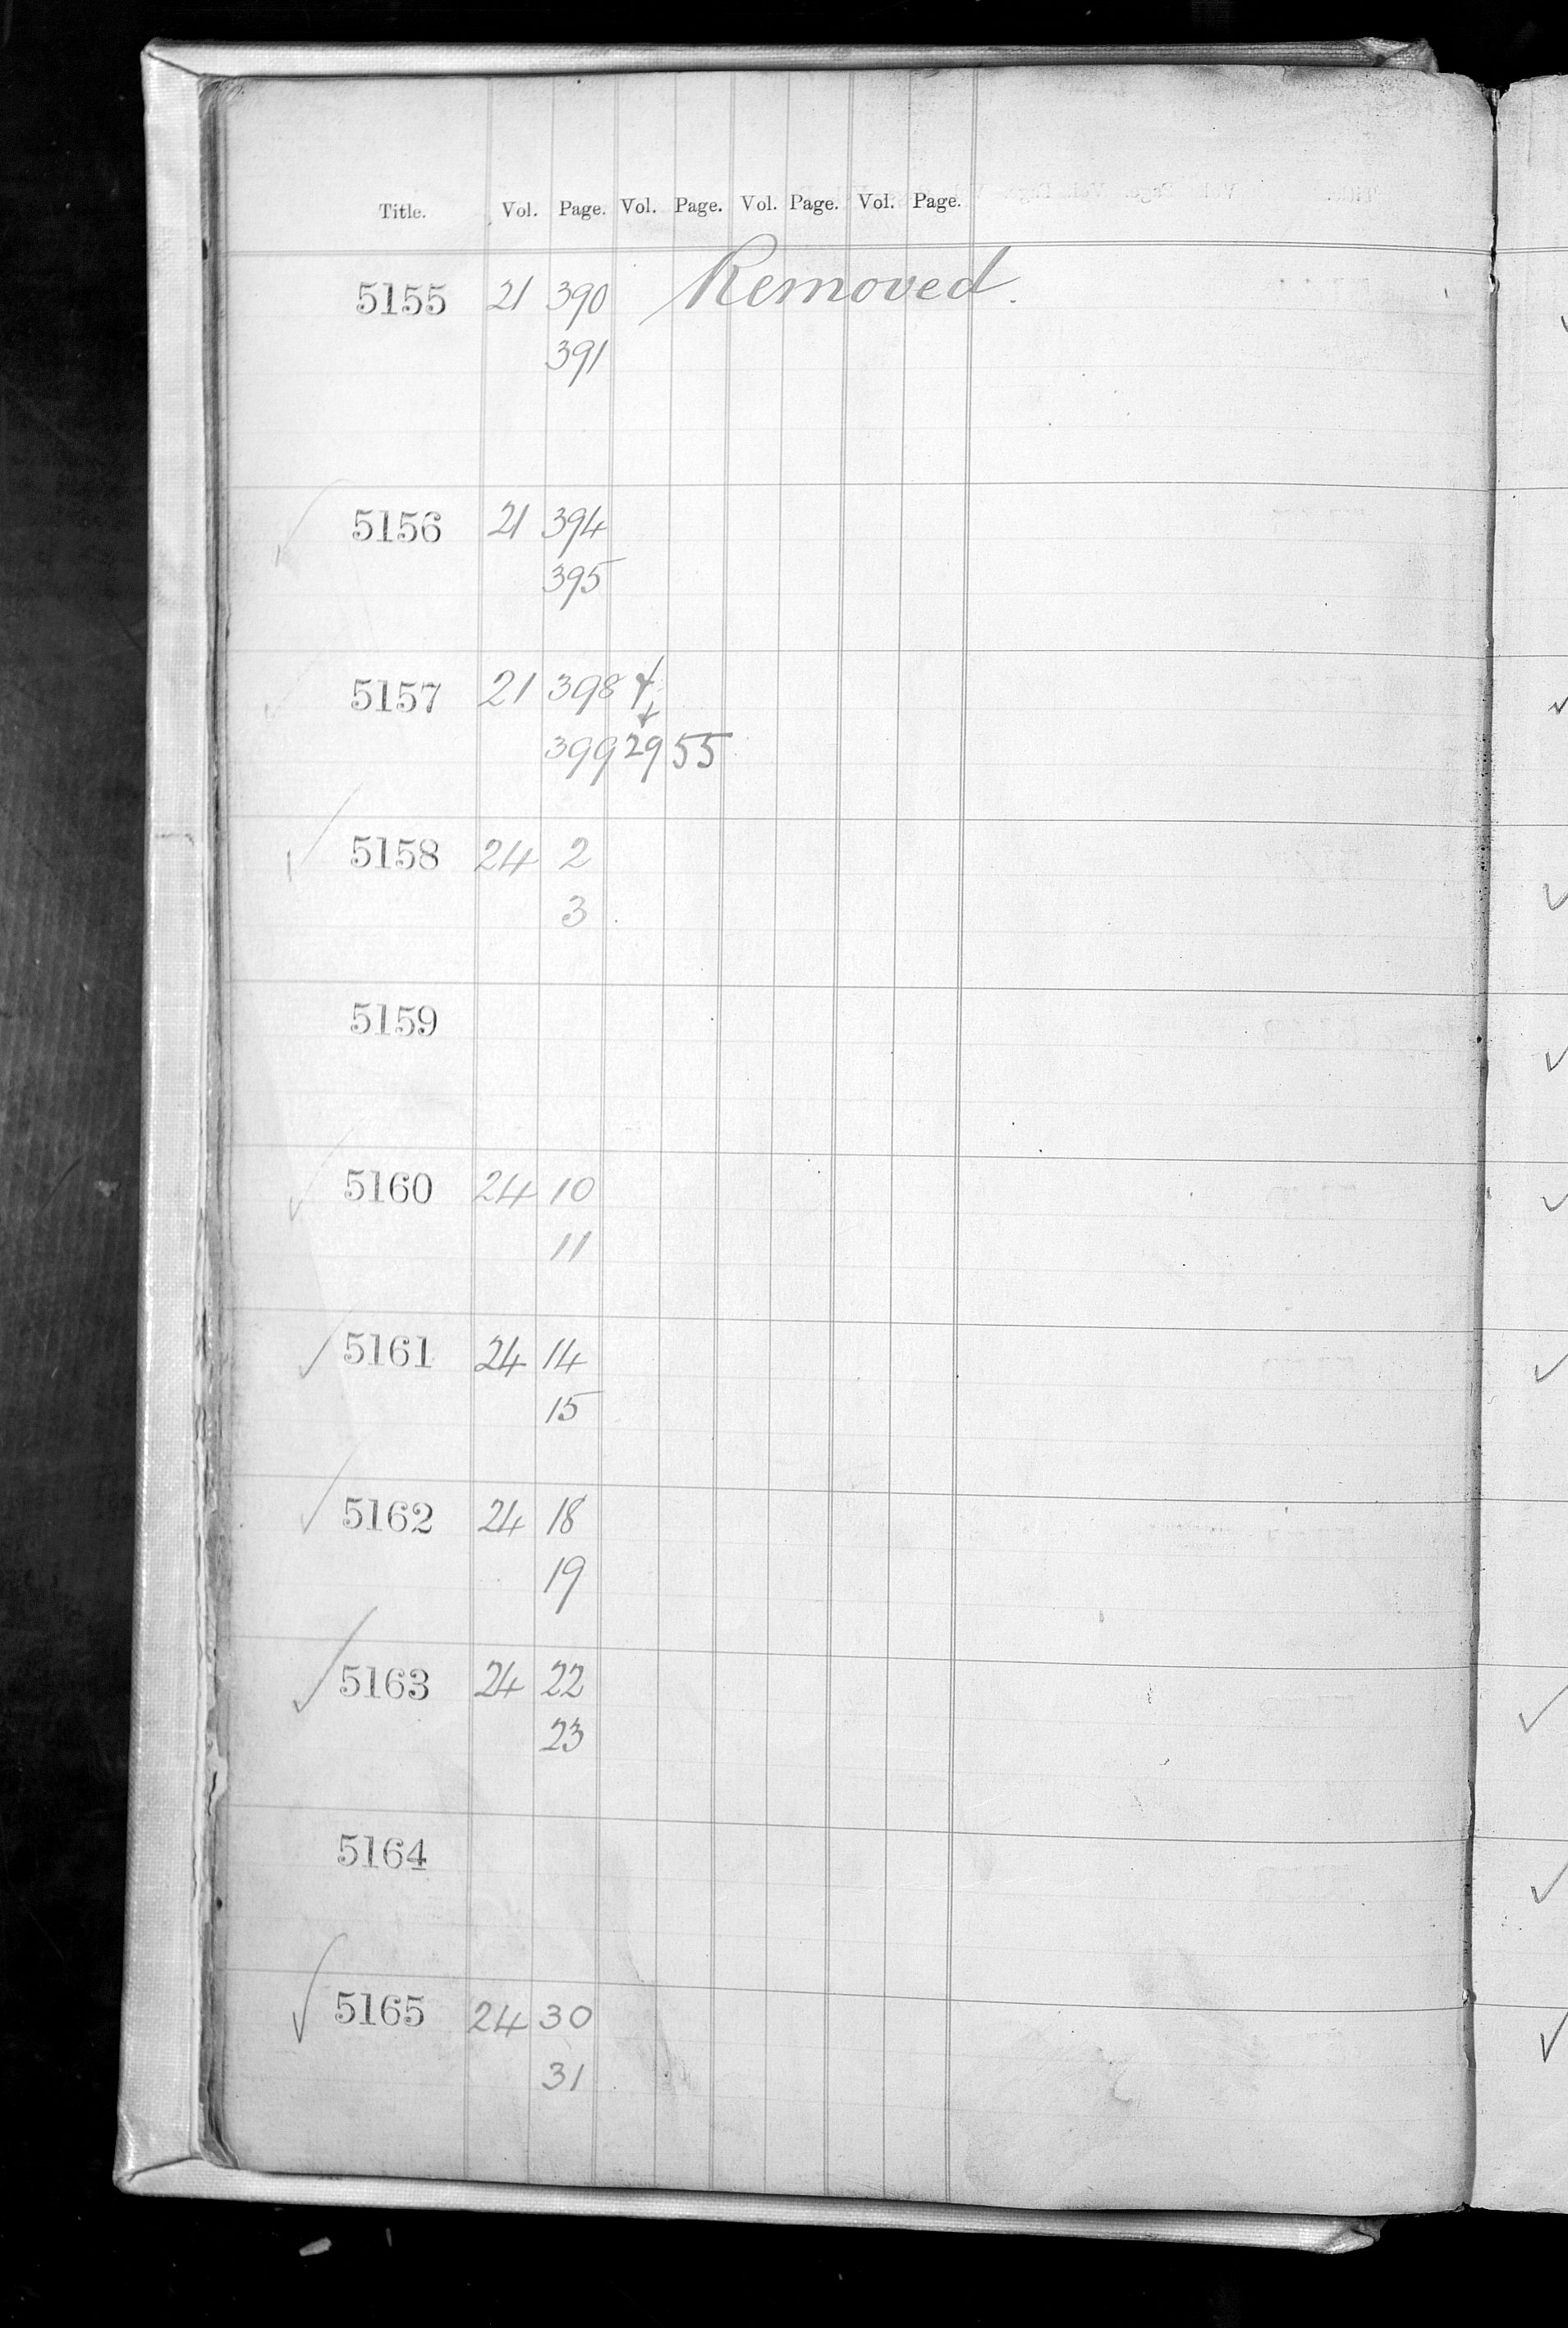 Title. Vol. Page. Vol. Page. Vol. Page. Vol. Page.
5155 21 390 Removed.
391
5156 21 394
395
5157 21 398 +
+
399 29 55
5158 24 2
3
5159
5160 24 10
11
5161 24 14
15
5162 24 18
19
5163 24 22
23
5164
5165 24 30
31